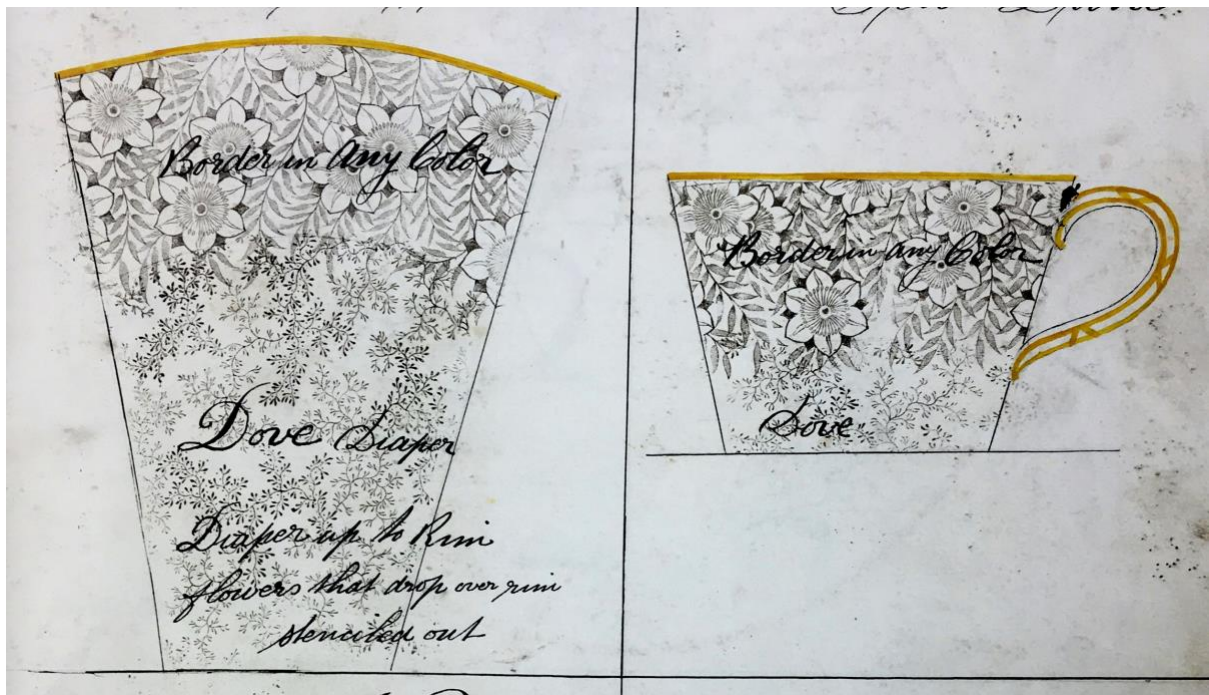 Border in Any Color
Dove Diaper
Diaper up to Rim
flowers that drop over rim
stenciled out
Border in Any Color
Dove